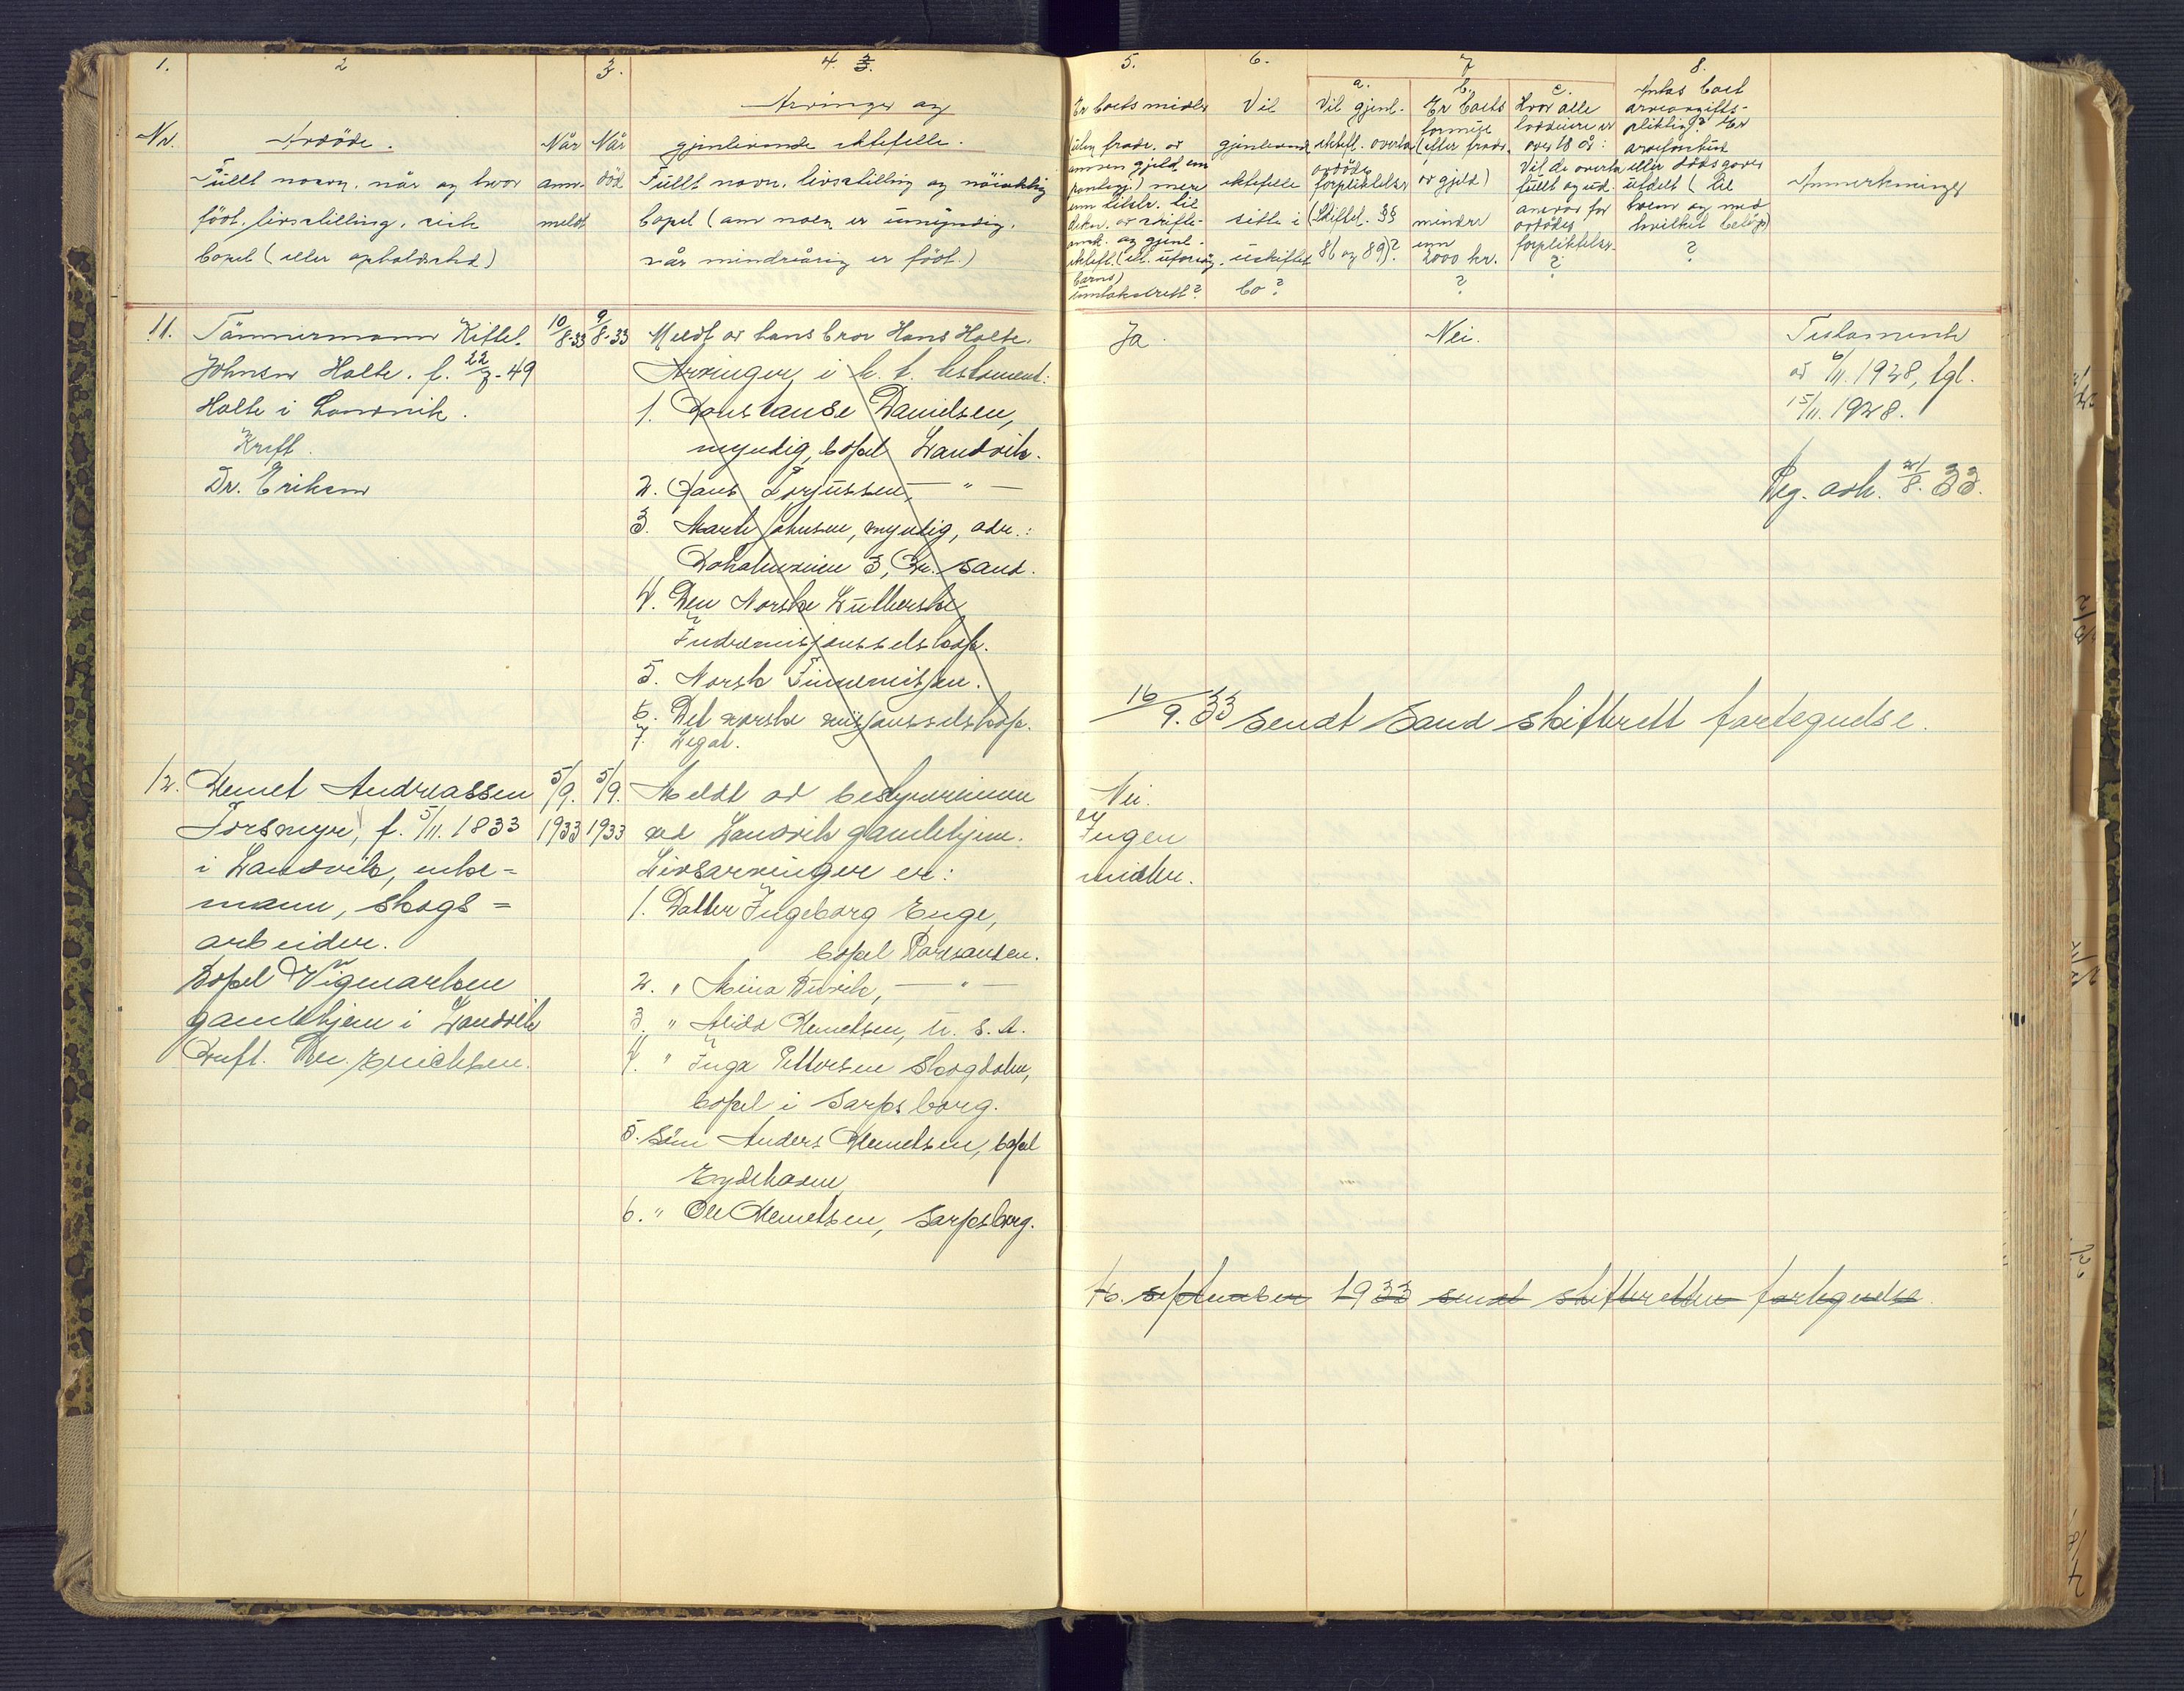 1.
2
3.
4.
5.
6.
7
8.
Nr.
Avdöde.
Fullt navn, når og hvor
födt, livsstilling, siste
bopel (eller opholdssted)
Når
anm-
meldt
Når
död
Arvinger og
gjenlevende ektefelle.
Fullt navn, livsstilling og nöiaktig
bopel (om noen er umyndig,
når mindreårig er födt.)
Er boets midler
uten fradr. av
annen gjeld enn
pantegj.) mere
enn tilstr. til
dekn. av skifte-
omk. og gjenl.
ektefl. (ell. uforsörg.
barns)
underholdsrett?
Vil
gjenlevende
ektefelle
sitte i
uskiftet
bo?
a.
Vil gjenl.
ektefl. overta
avdödes
forpliktelser
(Skiftel. §§
81 og 89)?
b.
Er boets
formue
(efter fradr.
av gjeld)
mindre
enn
2000 kr.
?
c.
Hvor alle
loddeiere er
over 18 år:
Vil de overta
fullt og ud.
ansvar for
avdödes
forpliktelser
?
Antas boet
arveavgifts-
pliktig? Er
arveforskudd
eller dödsgaver
utdelt (til
hvem og med
hvilket belöp)
?
Anmerkninger
11. Tömmermann Kittel
Johnsen Holte. f. 22/7-49
Holte i Landvik.
Kreft.
Dr. Eriksen
10/8-33
9/8-33
Meldt av hans bror Hans Holte.
Arvinger i h. t. testament:
1. Constanse Danielsen,
myndig, bopel Landvik.
2. Hans Torjussen, — " —
3. Marti Johnsen, myndig, adr.:
3, Kr. sand.
4. Den Norske Lutherske
Indremisjonsselskap.
5. Norsk Finnemisjon.
6. Det norske misjonsselskap.
7. Legat.
Ja.
Nei.
Testamente
av 6/11. 1928, tgl.
15/11. 1928.
Reg. avh. 21/8. 33.
16/9. 33 sendt Sand skifterett fortegnelse.
12. Klemet Andreassen
Torsmyr, f. 5/11. 1833
i Landvik, enke=
mann, skogs=
arbeider.
Bopel Vigenarken
gamlehjem i Landvik
Kreft. Dr. Erichsen.
5/9.
1933
5/9.
1933
Meldt av bestyrerinnen
ved Landvik gamlehjem.
Livsarvinger er:
1. Datter Ingeborg Enge,
bopel Porsanten.
2. " Mina Buvik, — " —
3. " Alida Klemetsen, U. S. A.
4. " Inga Pettersen Skogdalen,
bopel i Sarpsborg.
5. Sönn Anders Klemetsen, bopel
Eydehavn
6. " Ole Klemetsen, Sarpsborg.
Nei.
Ingen
midler.
16. september 1933 sendt skifteretten fortegnelse.